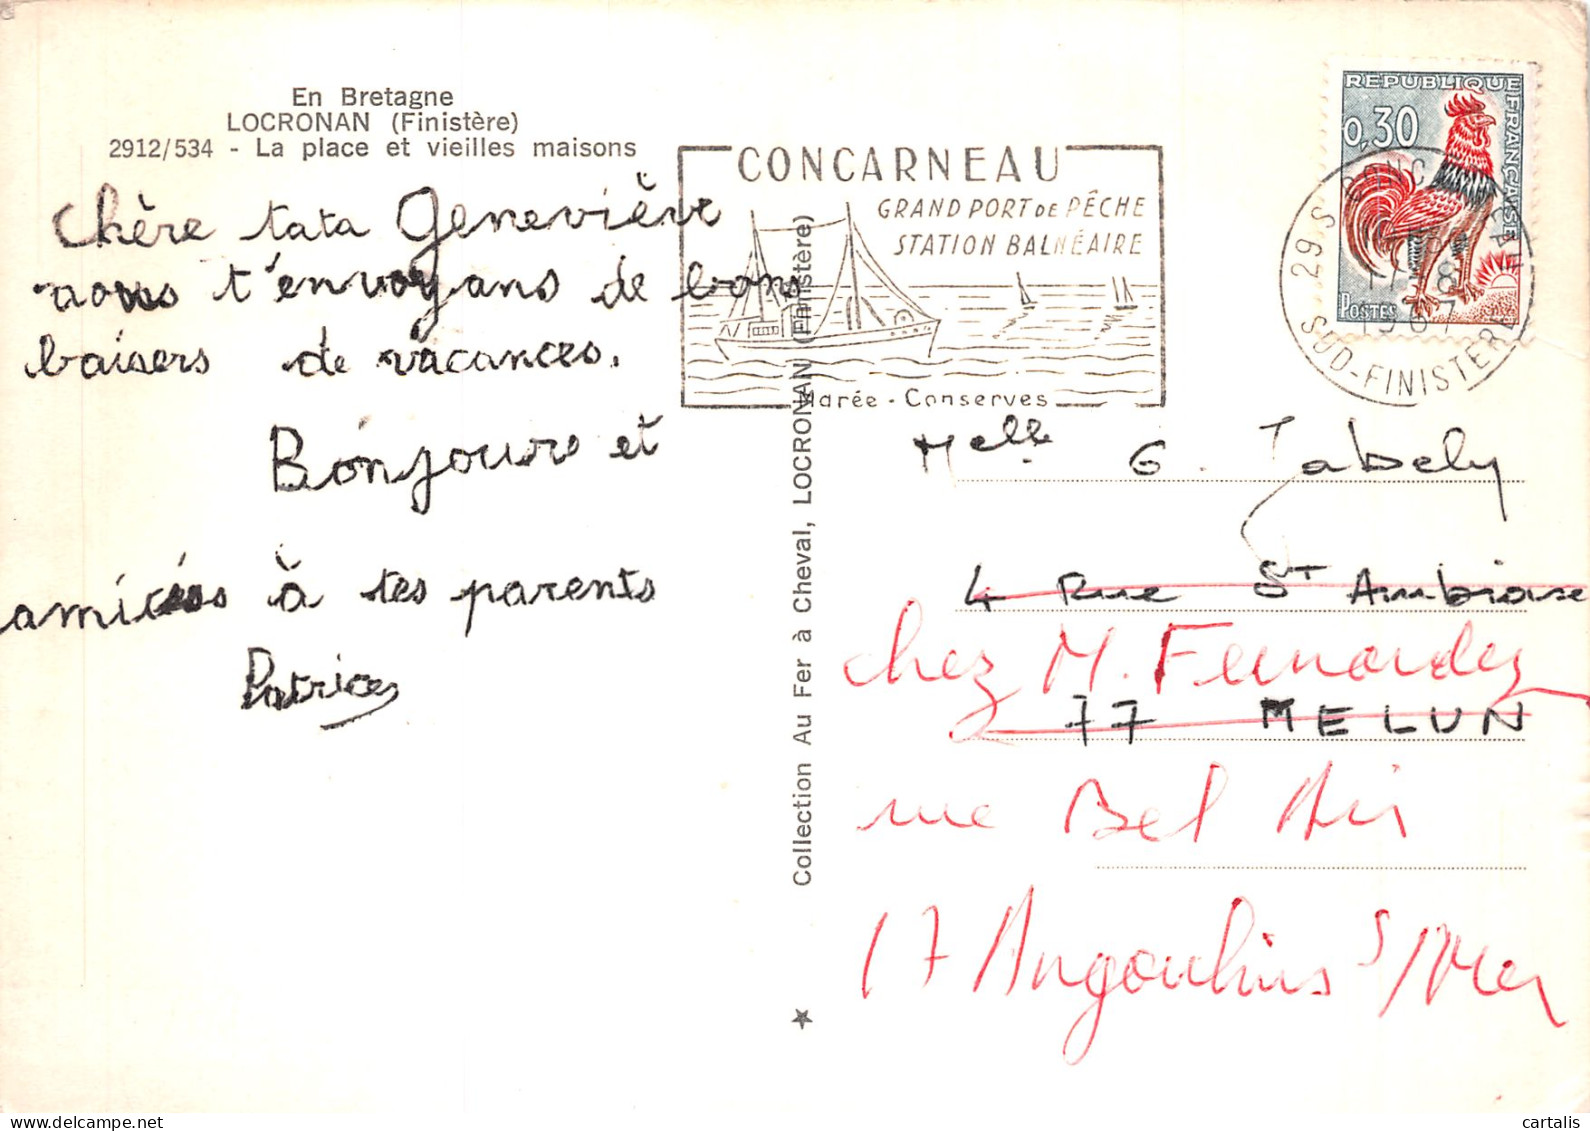 En Bretagne
LOCRONAN (Finistère)
2912/534 - La place et vieilles maisons
Chère tata Geneviève
nous t'envoyons de bons
baisers de vacances.
Bonjours et
amitiés à tes parents
Patrice
CONCARNEAU
GRAND PORT DE PÊCHE
STATION BALNÉAIRE
Marée - Conserves
REPUBLIQUE FRANÇAISE
0,30
POSTES
29 S CONCARNEAU
1967
SUD-FINISTÈRE
Collection Au Fer à Cheval, LOCRONAN (Finistère)
Melle G. Jabely
4 Rue St Ambroise
chez M. Fernandez
77 MELUN
rue Bel Air
17 Angoulins s/Mer
cartalis